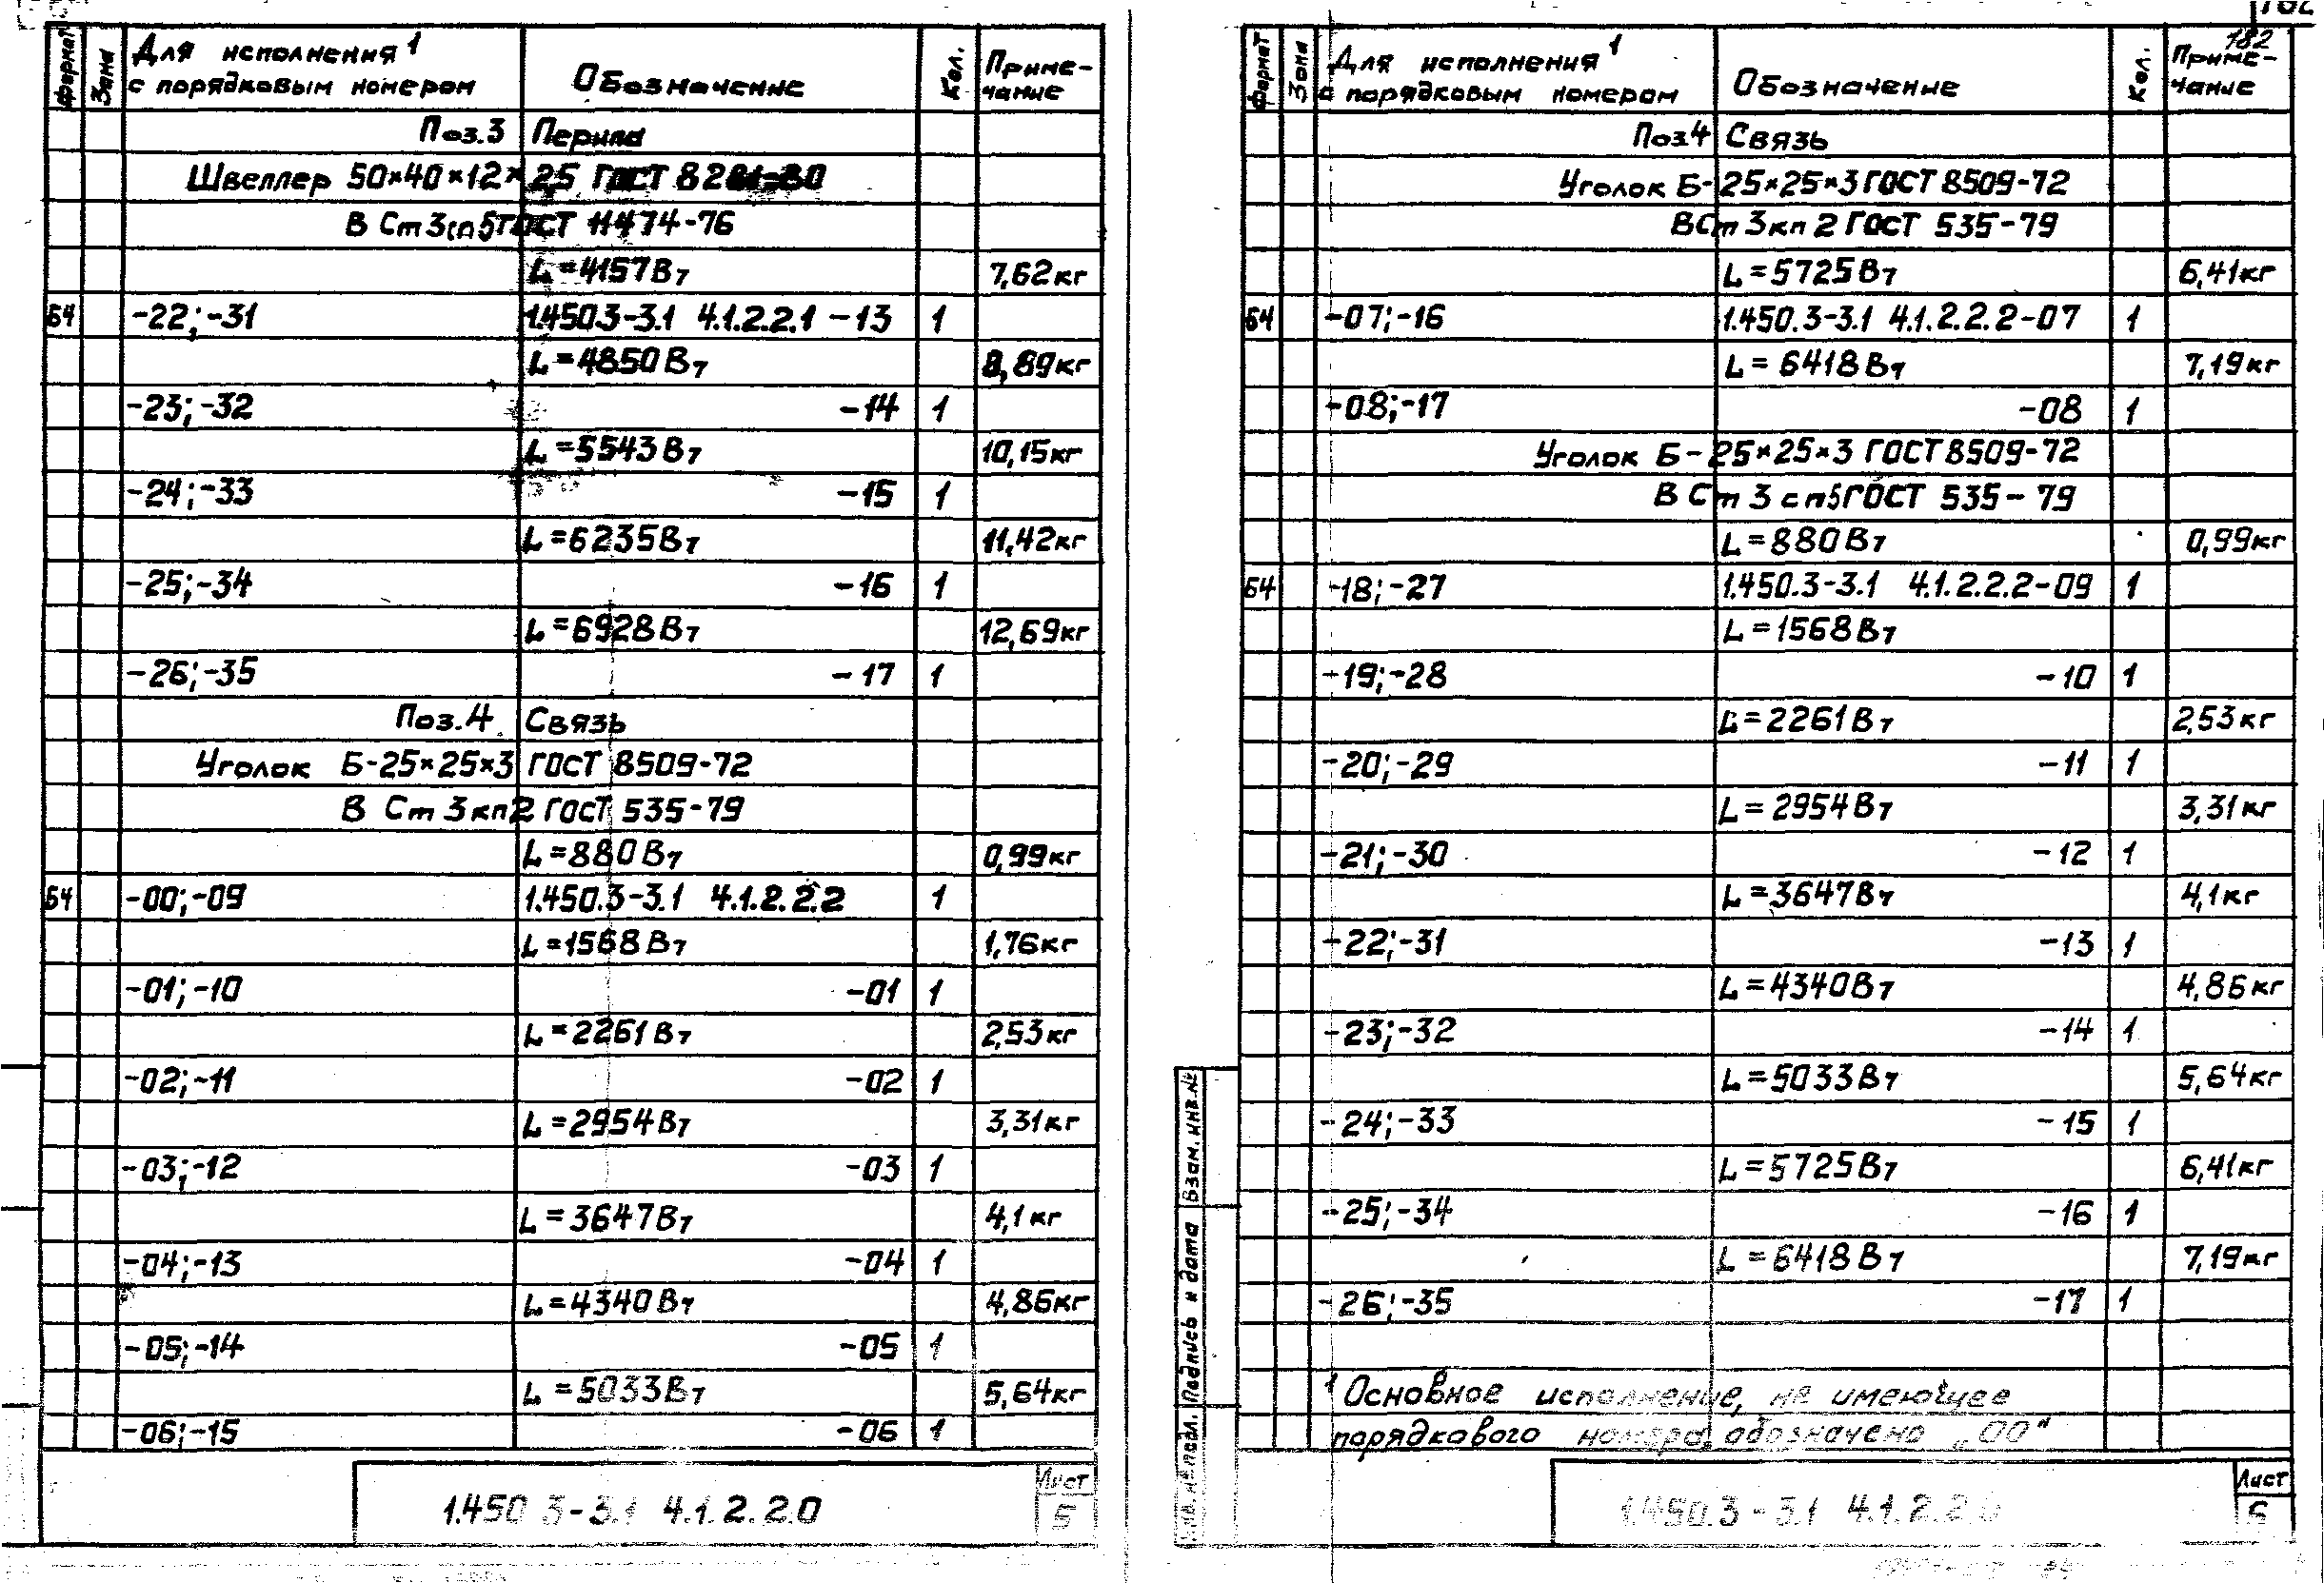 Формат Зона Для исполнения¹ с порядковым номером Обозначение Кол. Примечание
Поз.3 Перила
Швеллер 50×40×12×2,5 ГОСТ 8281-80
В Ст 3сп5 ГОСТ 11474-76
L=4157Вт 7,62кг
Б4 -22;-31 1.450.3-3.1 4.1.2.2.1 -13 1
L=4850Вт 8,89кг
-23;-32 -14 1
L=5543Вт 10,15кг
-24;-33 -15 1
L=6235Вт 11,42кг
-25;-34 -16 1
L=6928Вт 12,69кг
-26;-35 -17 1
Поз.4 Связь
Уголок Б-25×25×3 ГОСТ 8509-72
В Ст 3кп2 ГОСТ 535-79
L=880Вт 0,99кг
Б4 -00;-09 1.450.3-3.1 4.1.2.2.2 1
L=1568Вт 1,76кг
-01;-10 -01 1
L=2261Вт 2,53кг
-02;-11 -02 1
L=2954Вт 3,31кг
-03;-12 -03 1
L=3647Вт 4,1кг
-04;-13 -04 1
L=4340Вт 4,86кг
-05;-14 -05 1
L=5033Вт 5,64кг
-06;-15 -06 1
1.450.3-3.1 4.1.2.2.0
Лист
5
182
182
Формат Зона Для исполнения¹ с порядковым номером Обозначение Кол. Примечание
Поз.4 Связь
Уголок Б-25×25×3 ГОСТ 8509-72
ВСт 3кп 2 ГОСТ 535-79
L=5725Вт 6,41кг
Б4 -07;-16 1.450.3-3.1 4.1.2.2.2-07 1
L=6418Вт 7,19кг
-08;-17 -08 1
Уголок Б-25×25×3 ГОСТ 8509-72
В Ст 3 сп5 ГОСТ 535-79
L=880Вт 0,99кг
Б4 -18;-27 1.450.3-3.1 4.1.2.2.2-09 1
L=1568Вт
-19;-28 -10 1
L=2261Вт 2,53кг
-20;-29 -11 1
L=2954Вт 3,31кг
-21;-30 -12 1
L=3647Вт 4,1кг
-22;-31 -13 1
L=4340Вт 4,86кг
-23;-32 -14 1
L=5033Вт 5,64кг
-24;-33 -15 1
L=5725Вт 6,41кг
-25;-34 -16 1
L=6418Вт 7,19кг
-26;-35 -17 1
¹ Основное исполнение, не имеющее
порядкового номера, обозначено „00"
Инв. № подл. Подпись и дата Взам. инв. №
1.450.3-3.1 4.1.2.2.0
Лист
6